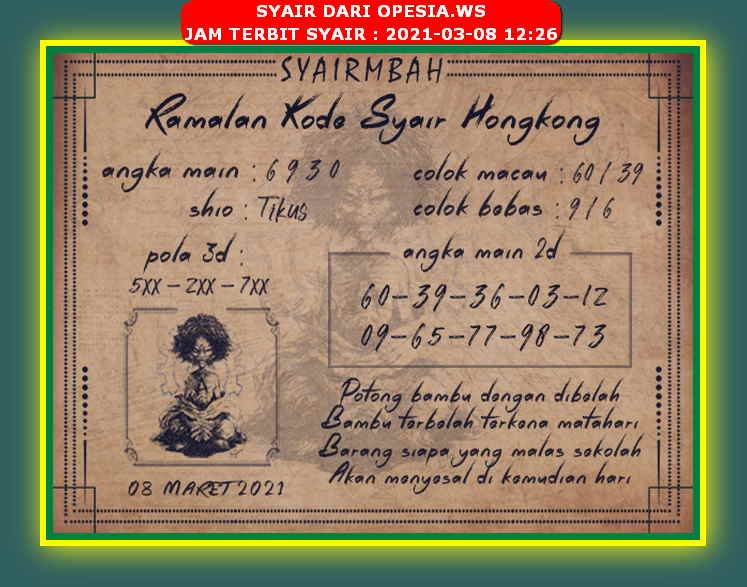 SYAIR DARI OPESIA.WS
JAM TERBIT SYAIR : 2021-03-08 12:26
SYAIRMBAH
Ramalan Kode Syair Hongkong
angka main : 6 9 3 0
colok macau : 60 / 39
shio : Tikus
colok bebas : 9 / 6
pola 3d :
5XX - 2XX - 7XX
angka main 2d
60-39-36-03-12
09-65-77-98-73
Potong bambu dengan dibelah
Bambu terbelah terkena matahari
Barang siapa yang malas sekolah
Akan menyesal di kemudian hari
08 MARET 2021